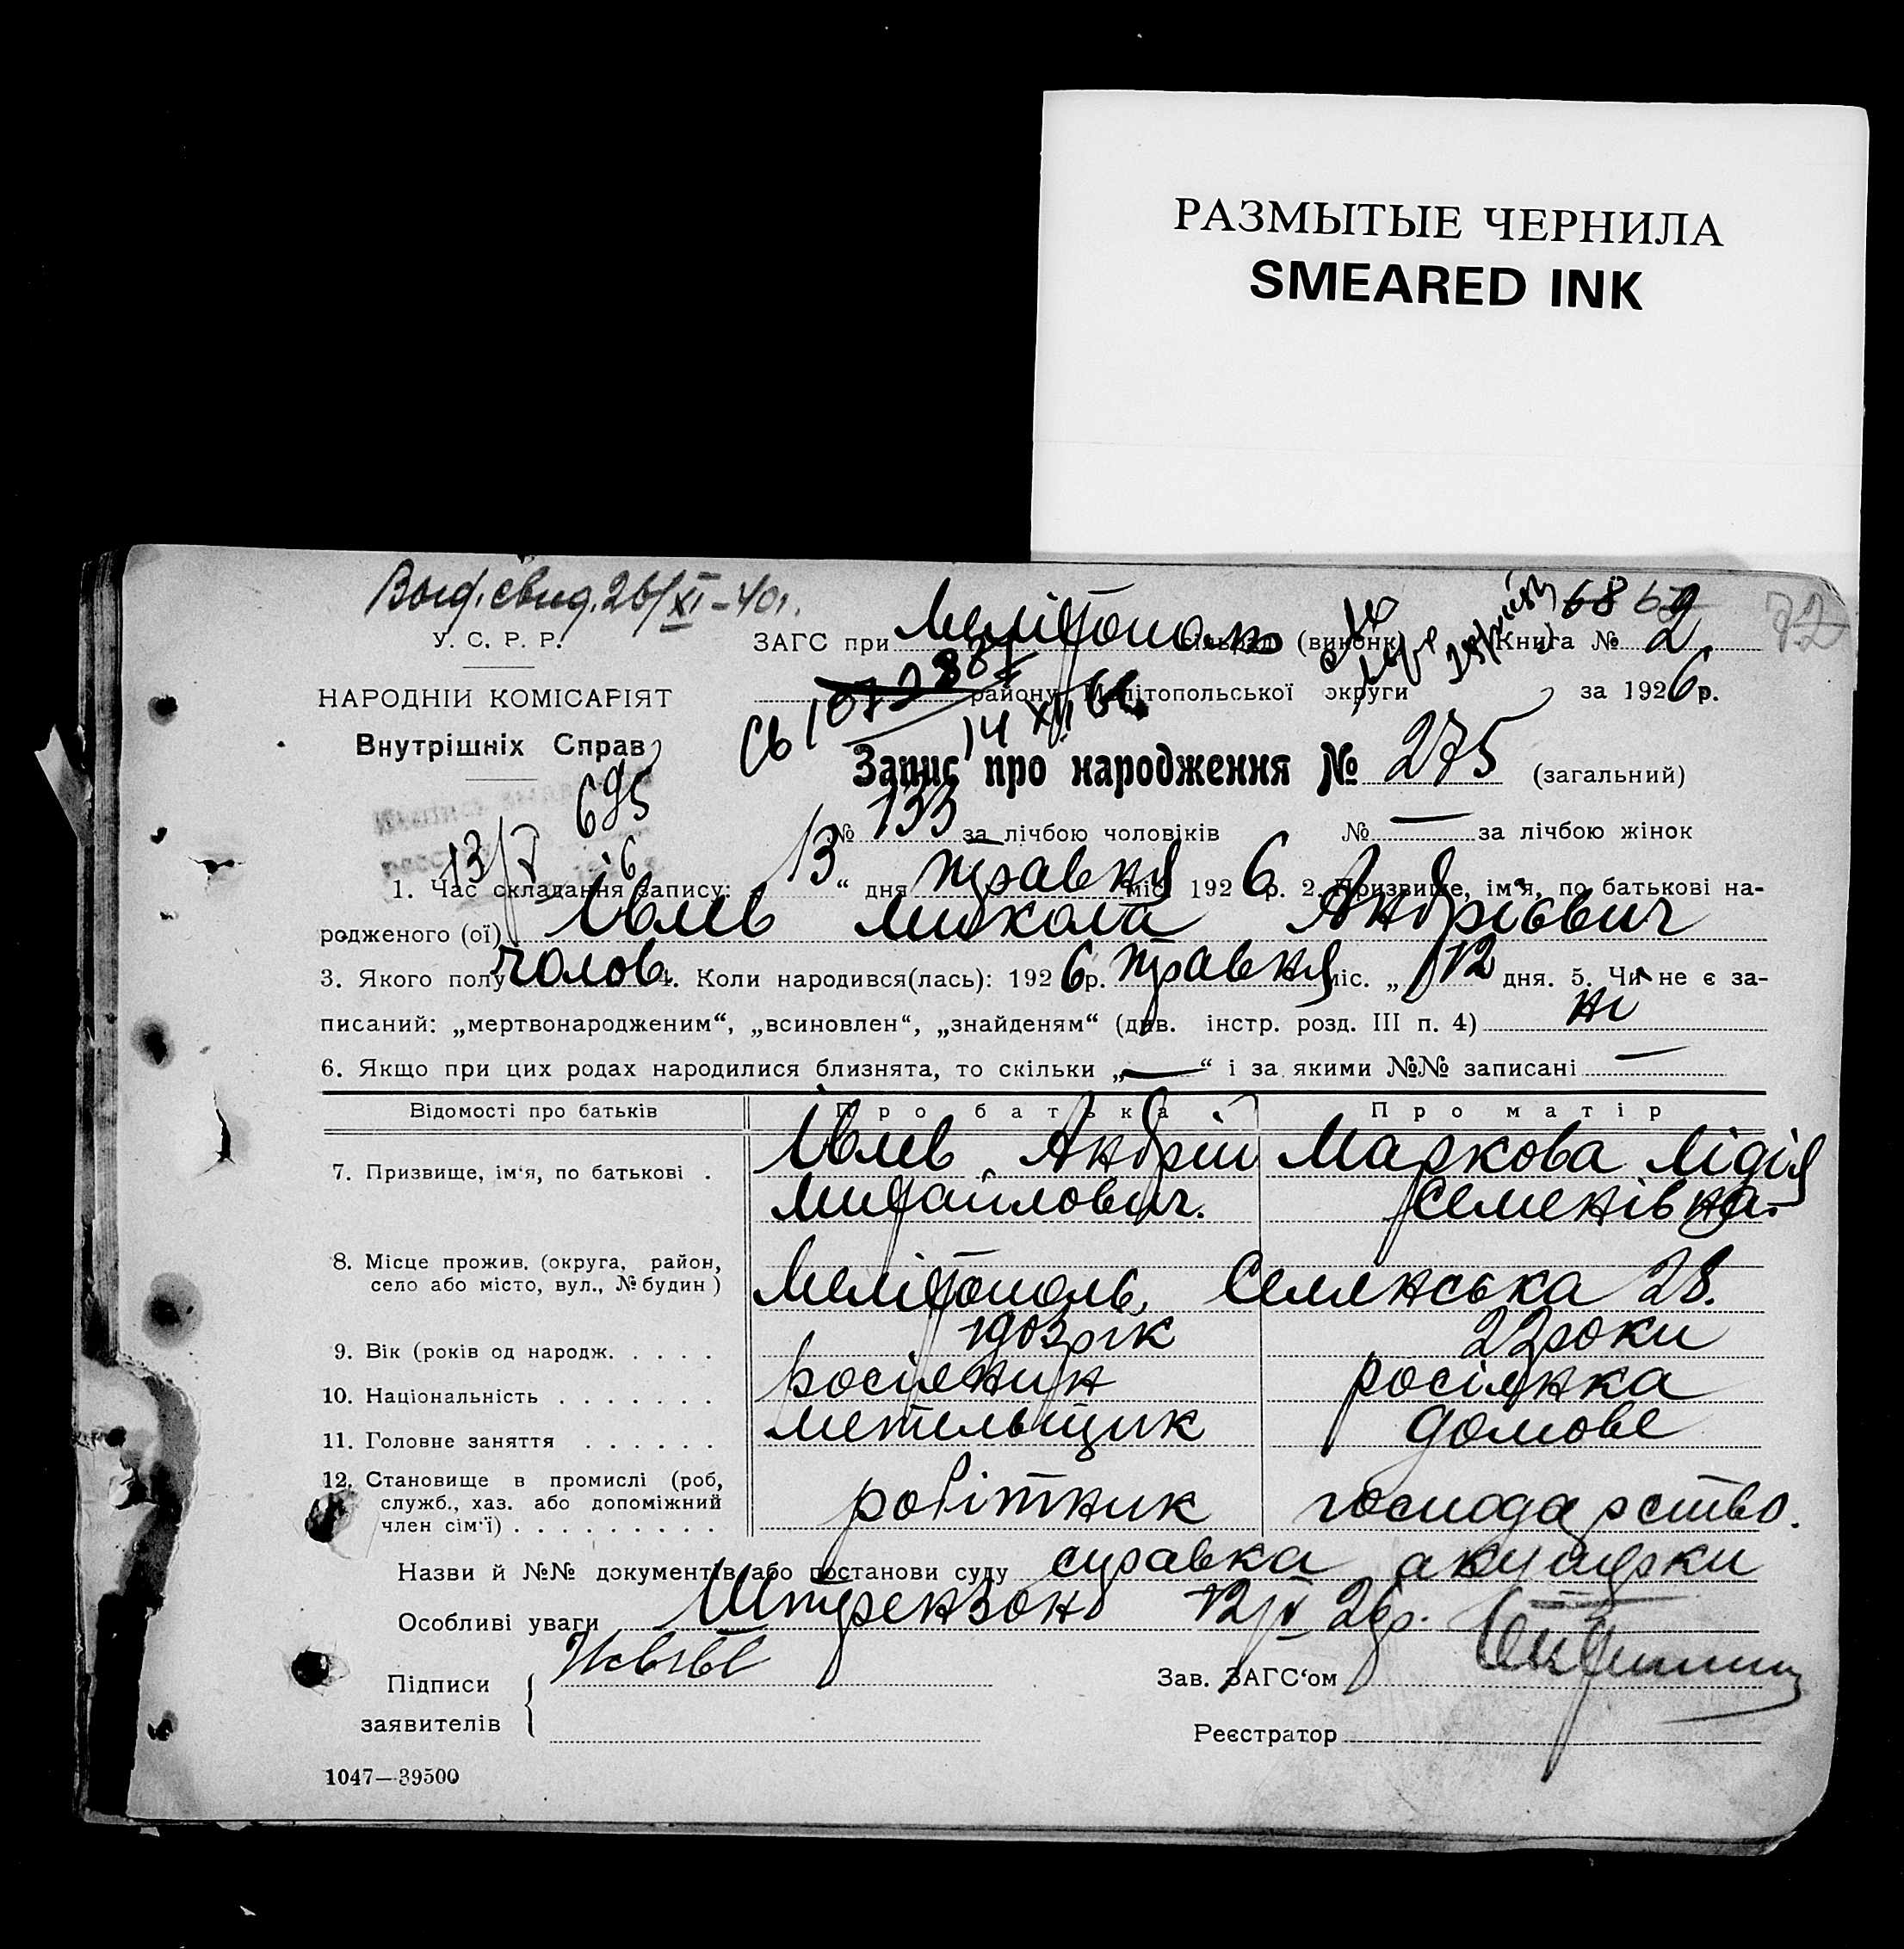 РАЗМЫТЫЕ ЧЕРНИЛА
SMEARED INK
Выд. свид. 26/XI-40г.
68 69 72
У. С. Р. Р.
ЗАГС при Мелітополь (виконк) Книга № 2
НАРОДНІЙ КОМІСАРІЯТ
району Мелітопольської округи за 1926 р.
14 XII 66
Внутрішніх Справ
Запис про народження № 275 (загальний)
695
№ 133 за лічбою чоловіків № — за лічбою жінок
1. Час складання запису: 13 “ дня травня міс. 1926 р. 2. Призвище, ім'я, по батькові на-
родженого (ої) Івлев Микола Андрієвич
3. Якого полу чолов. 4. Коли народився(лась): 1926 р. травня міс. „ 12 дня. 5. Чи не є за-
писаний: „мертвонародженим“, „всиновлен“, „знайденям“ (див. інстр. розд. III п. 4) ні
6. Якщо при цих родах народилися близнята, то скільки „—“ і за якими №№ записані —
Відомості про батьків Про батька Про матір
7. Призвище, ім'я, по батькові . Івлев Андрій Маркова Лідія
Михайлович. Семенівна.
8. Місце прожив. (округа, район,
село або місто, вул., № будин) Мелітополь, Селянська 28.
9. Вік (років од народж. . . . . 1903 рік 22 роки
10. Національність . . . . . . . росіянин росіянка
11. Головне заняття . . . . . . метельщик домове
12. Становище в промислі (роб,
служб., хаз. або допоміжний
член сім'ї) . . . . . . . . . робітник господарство.
Назви й №№ документів або постанови суду справка акушерки
Особливі уваги Штрензон 12/V 26 р.
Підписи
заявителів
Зав. ЗАГС'ом
Реєстратор
1047—39500